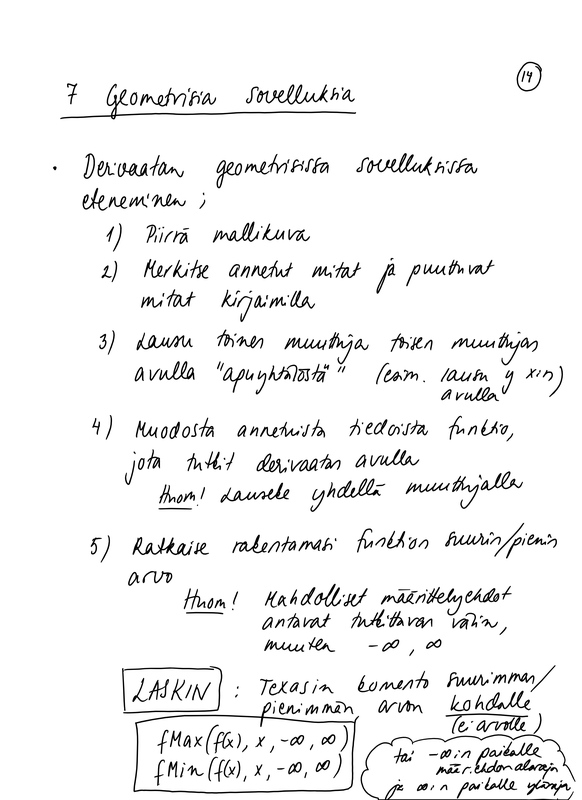 14
7 Geometrisia sovelluksia
• Derivaatan geometrisissa sovelluksissa
eteneminen ;
1) Piirrä mallikuva
2) Merkitse annetut mitat ja puuttuvat
mitat kirjaimilla
3) Lausu toinen muuttuja toisen muuttujan
avulla "apuyhtälöstä" (esim. lausu y x:n)
avulla
4) Muodosta annetuista tiedoista funktio,
jota tutkit derivaatan avulla
Huom! Lauseke yhdellä muuttujalla
5) Ratkaise rakentamasi funktion suurin/pienin
arvo
Huom! Mahdolliset määrittelyehdot
antavat tutkittavan välin,
muuten -∞, ∞
LASKIN : Texasin komento suurimman/
pienimmän arvon kohdalle
(ei arvolle)
fMax(f(x), x, -∞, ∞)
fMin(f(x), x, -∞, ∞)
tai -∞:n paikalle
määr.ehdon alaraja
ja ∞:n paikalle yläraja